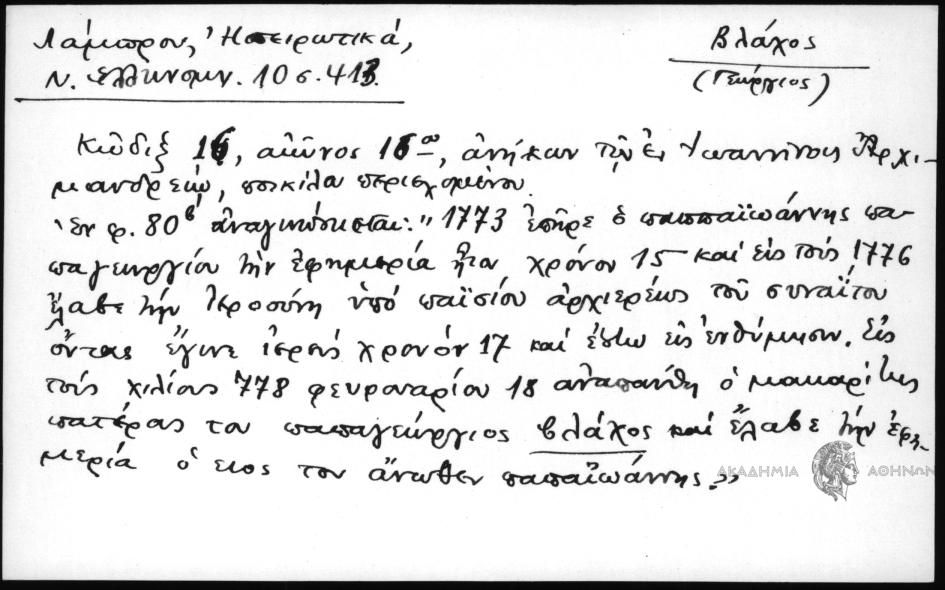 Λάμπρου, Ἠπειρωτικά,
Ν. Ἑλληνομν. 10 σ. 413.
Βλάχος
(Γεώργιος)
Κῶδιξ 16, αἰῶνος 16ου, ἀνήκων τῷ ἐν Ἰωαννίνοις Ἀρχι-
μανδρείῳ, ποικίλα περιεχομένου.
Ἐν φ. 80β ἀναγινώσκεται: "1773 ἐπῆρε ὁ παππαϊωάννης πα-
παγεωργίου τὴν ἐφημερία ἦταν χρόνον 15 καὶ εἰς τοὺς 1776
ἔλαβε τὴν ἱεροσύνη ὑπό παϊσίου ἀρχιερέως τοῦ συναΐτου
ὄντας ἔγινε ἱερεὺς χρονόν 17 καὶ ἔστω εἰς ἐνθύμησιν. Εἰς
τοὺς χιλίους 778 φευρουαρίου 18 αναπαύθη ὁ μακαρίτης
πατέρας του παπαγεώργιος βλάχος καὶ ἔλαβε τὴν ἐφη-
μερία ὁ ειος του ἄνωθεν παπαϊωάννης."
ΑΚΑΔΗΜΙΑ ΑΘΗΝΩΝ